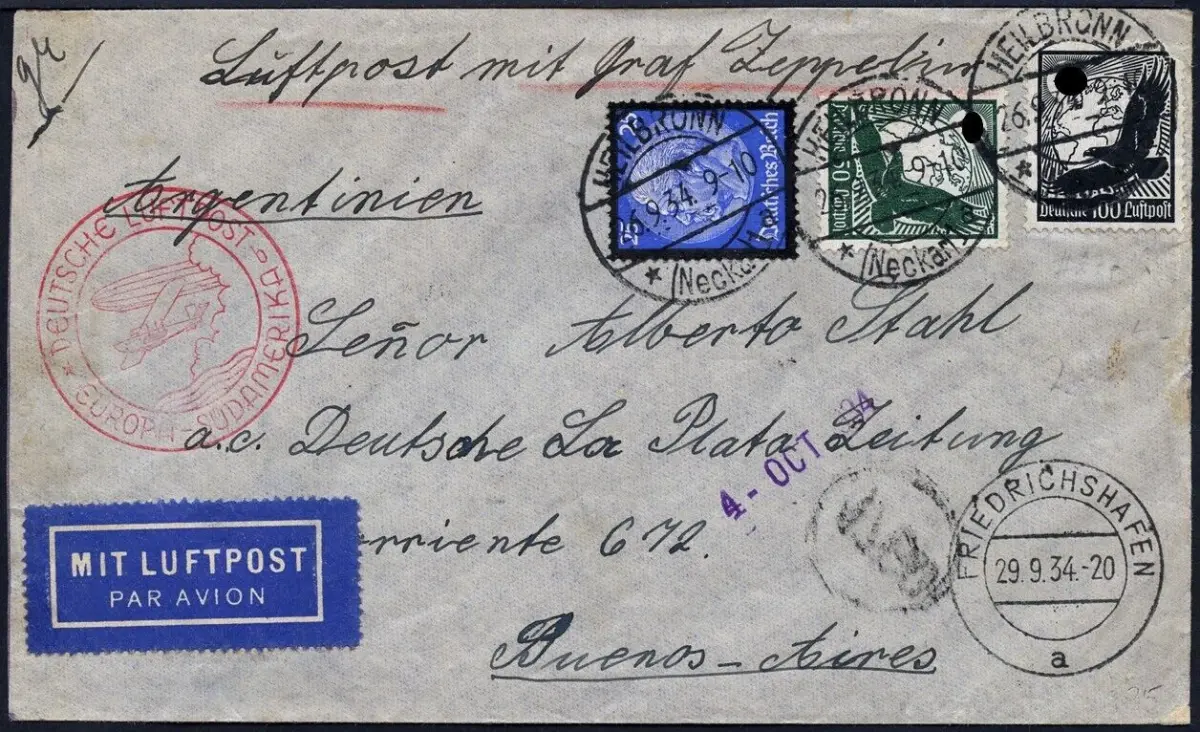 gr
Luftpost mit Graf Zeppelin
Argentinien
HEILBRONN
26.9.34. 9-10
(Neckar)
25
25
Deutsches Reich
HEILBRONN
9-10
(Neckar)
50
HEILBRONN
26.9.
Deutsche 100 Luftpost
DEUTSCHE LUFTPOST
EUROPA-SÜDAMERIKA
Señor Alberto Stahl
a.c. Deutsche La Plata Zeitung
4-OCT 34
rriente 672.
MIT LUFTPOST
PAR AVION
FRIEDRICHSHAFEN
29.9.34.-20
a
Buenos-Aires